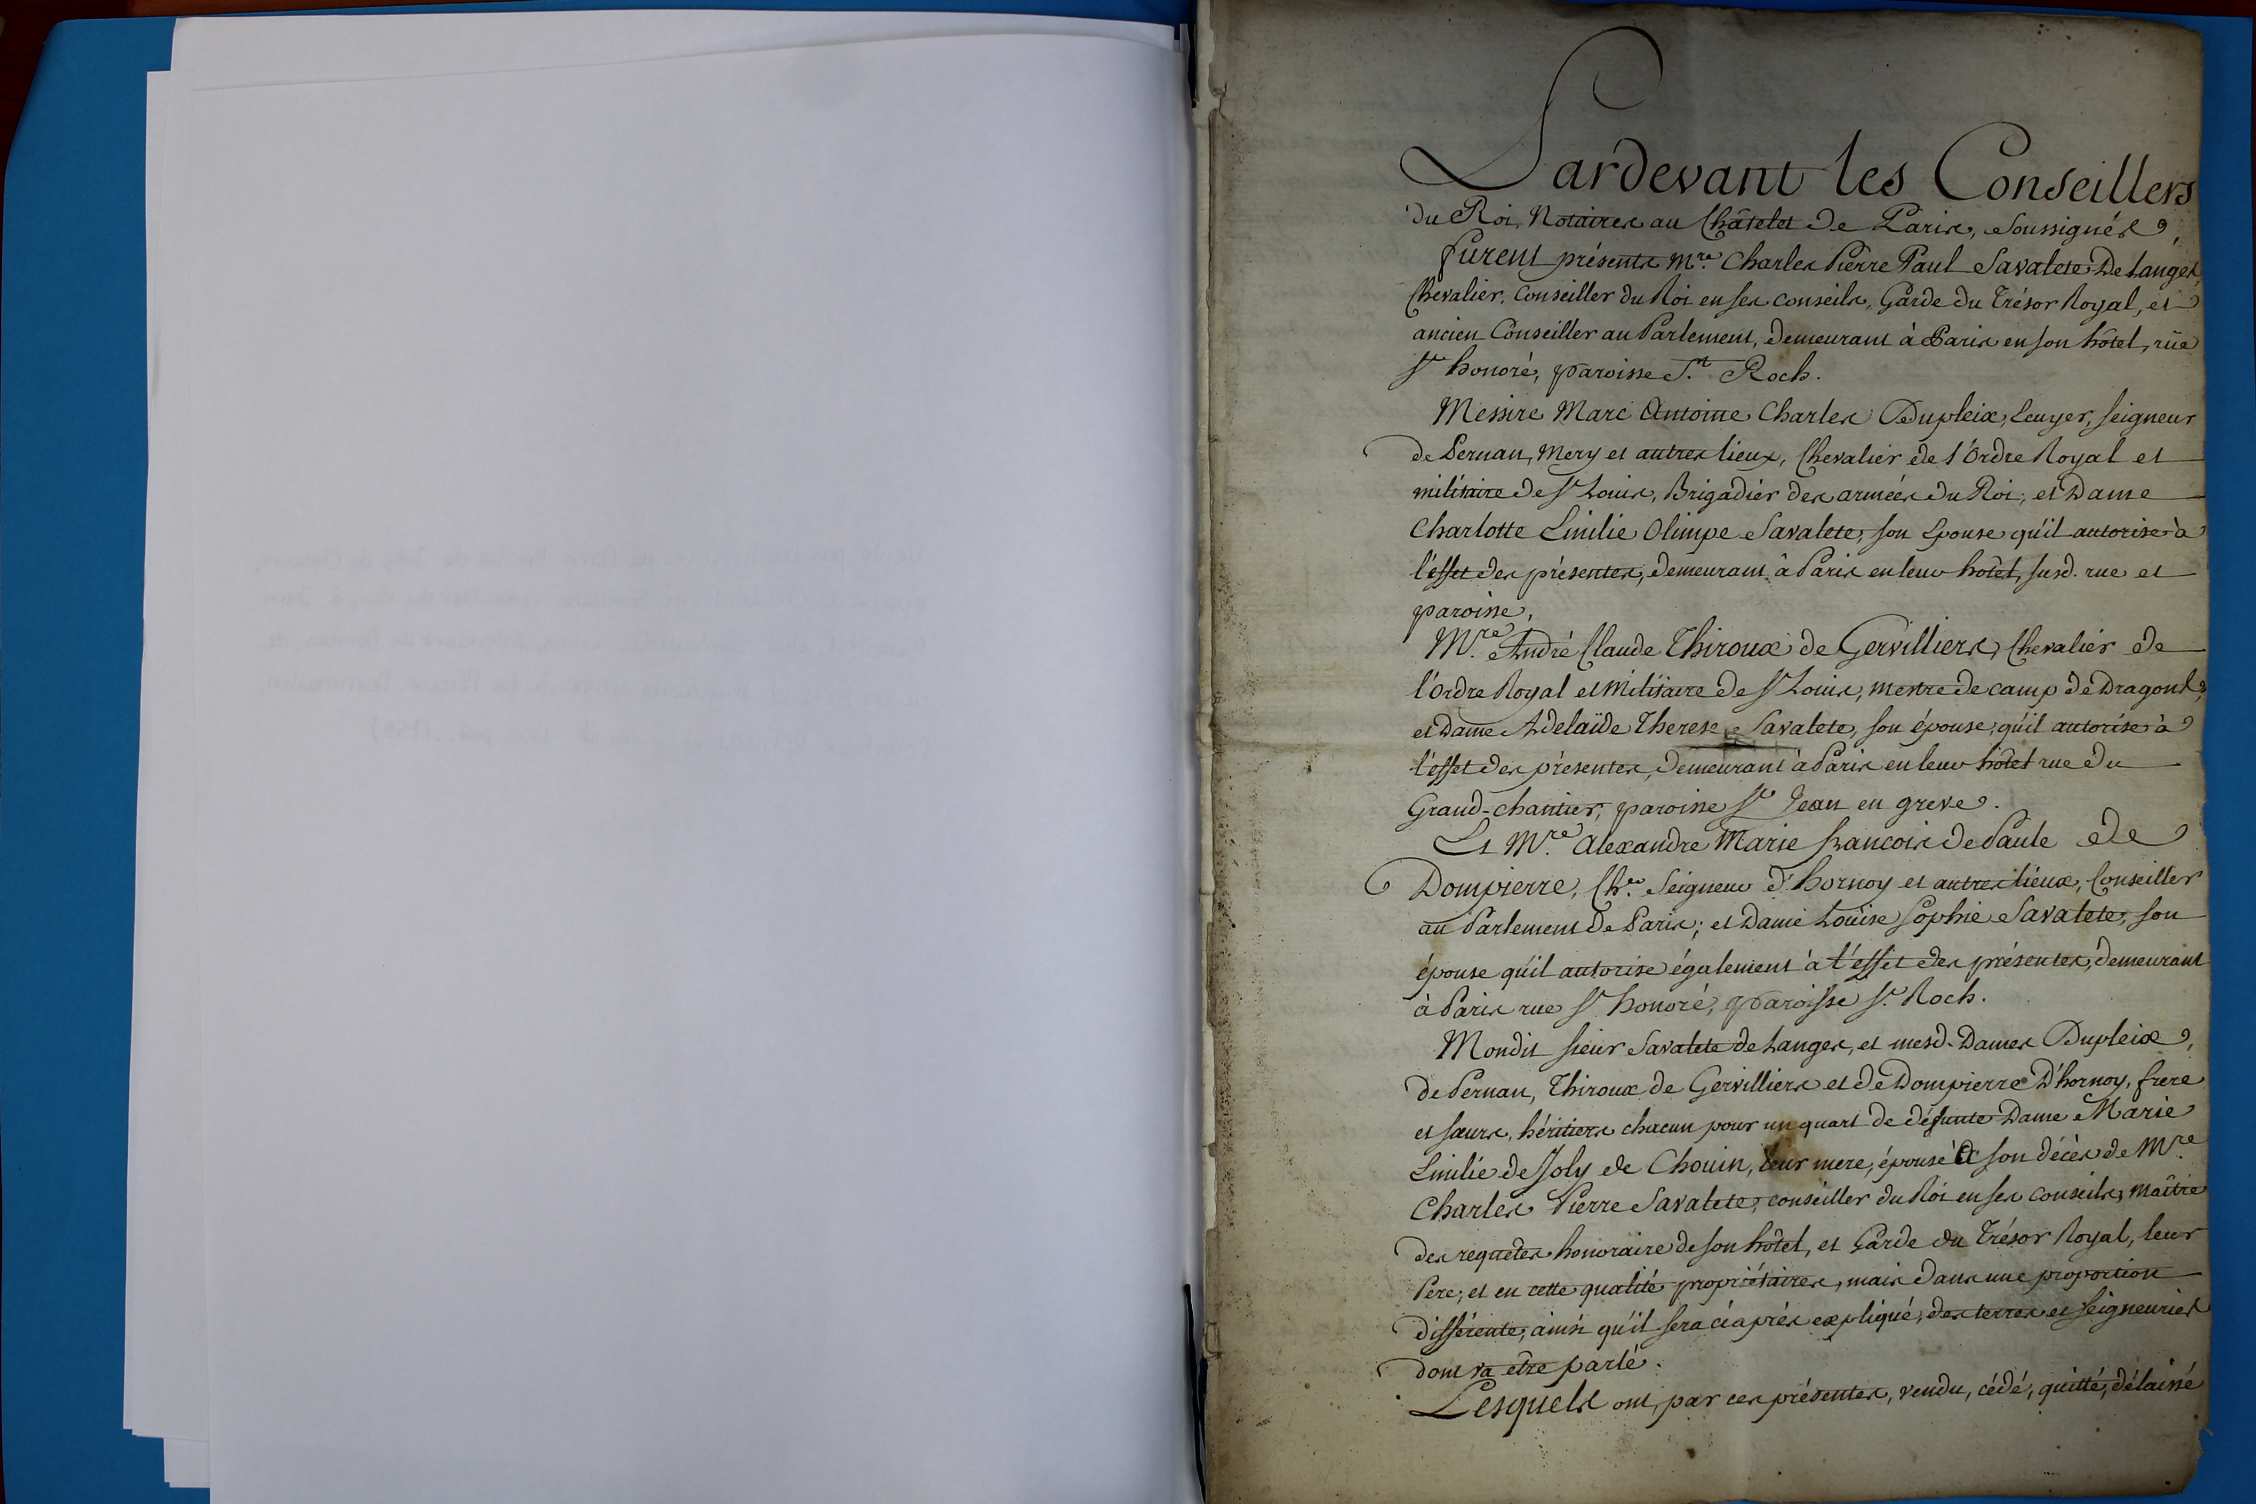 Pardevant les Conseillers
du Roi, Notaires au Châtelet de Paris, soussignés,
furent présents Mre. Charles Pierre Paul Savalete De Langes,
Chevalier, Conseiller du Roi en ses conseils, Garde du Trésor Royal, et
ancien Conseiller au Parlement, demeurant à Paris en son hôtel, rüe
St. honoré, paroisse St. Roch.
Messire Marc Antoine Charles Dupleix, Ecuyer, seigneur
de Pernan, Mery et autres lieux, Chevalier de l'Ordre Royal et
militaire de St. Louis, Brigadiér des armées du Roi, et Dame
Charlotte Emilie Olimpe Savalete, son Epouse qu'il autorise à
l'effet des présentes, demeurant à Paris en leur hotel, susd. rue et
paroisse,
Mre. André Claude Thiroux de Gervilliers, Chevaliér de
l'ordre Royal et Militaire de St. Louis, mestre de camp de Dragons,
et Dame Adelaïde Therese Savalete, son épouse, qu'il autorise à
l'effet des présentes, demeurant à Paris en leur hôtel rue du
Grand-chantier, paroisse St. Jean en greve.
Et Mre. Alexandre Marie francois De Paule de
Dompierre, Cher. Seigneur d'hornoy et autres lieux, Conseiller
au Parlement de Paris; et Dame Louise Sophie Savalete, son
épouse qu'il autorise également à l'effet des présentes, demeurant
à Paris rue St. honoré, paroisse St. Roch.
Mondit sieur Savalete de Langes, et mesd. Dames Dupleix,
de Pernan, Thiroux de Gervilliers et de Dompierre D'hornoy, frere
et soeurs, héritiers chacun pour un quart de défunte Dame Marie
Emilie de Joly de Chouin, leur mere, épouse à son décès de Mre.
Charles Pierre Savalete, conseiller du Roi en ses conseils, Maître
des requetes honoraire de son hôtel, et Garde du Trésor Royal, leur
Pere; et en cette qualité propriétaires, mais dans une proportion
différente, ainsi qu'il sera ciaprés expliqué, des terres et seigneuries
dont va etre parlé.
Lesquels ont, par ces présentes, vendu, cédé, quitté, délaissé